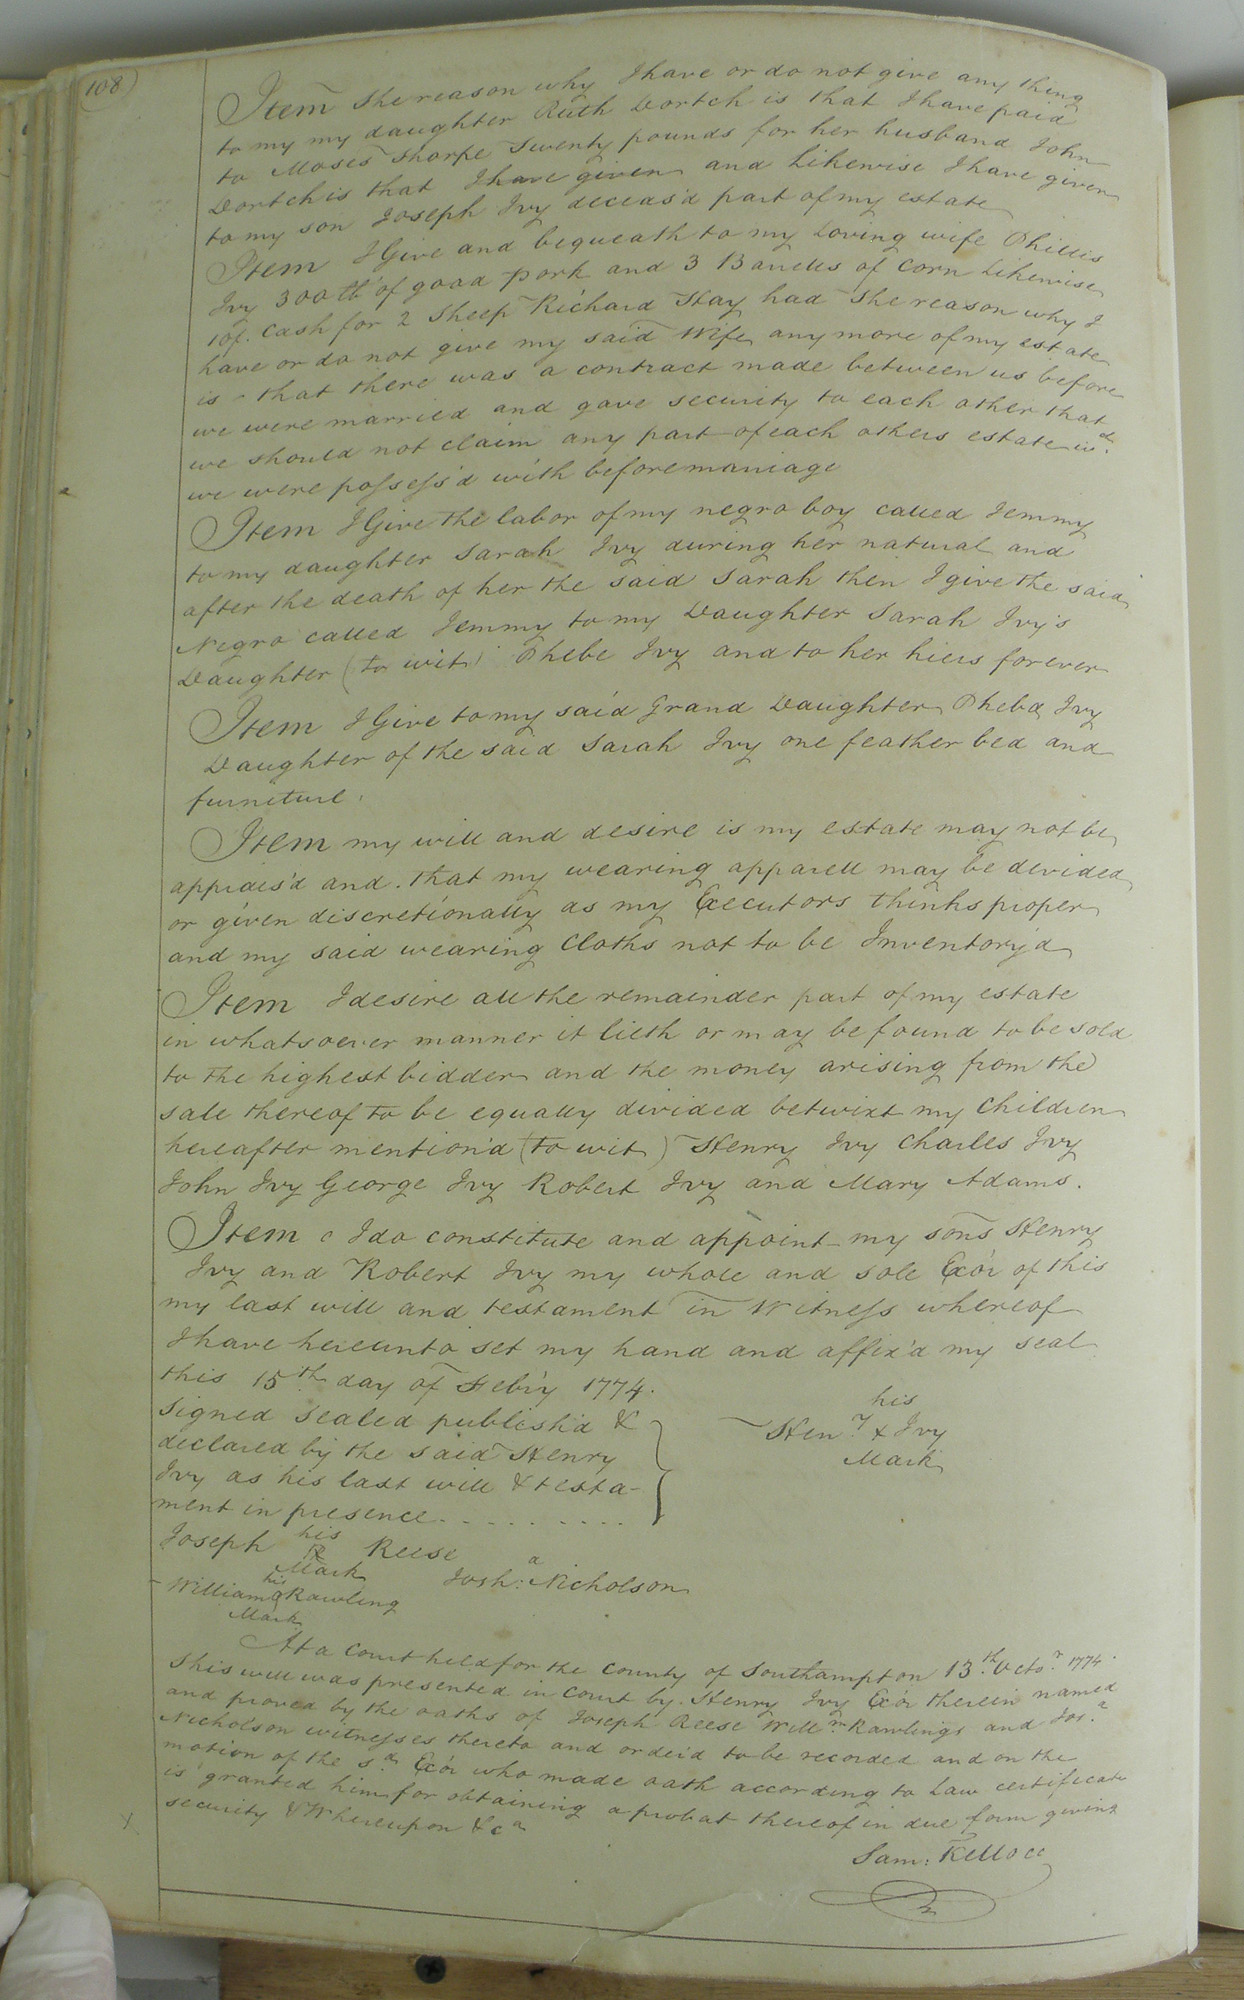 108
Item The reason why I have or do not give any thing
to my my daughter Ruth Dortch is that I have paid
to Moses Thorpe Twenty pounds for her husband John
Dortch is that I have given and Likewise I have given
to my son Joseph Ivy deceas'd part of my estate
Item I Give and bequeath to my Loving wife Phillis
Ivy 300 lb of good pork and 3 Barrells of Corn Likewise
10/. Cash for 2 Sheep Richard Hay had The reason why I
have or do not give my said Wife any more of my estate
is - that there was a contract made between us before
we were married and gave security to each other that
we should not claim any part of each others estate wd.
we were possess'd with before marriage
Item I Give the labor of my negro boy called Jemmy
to my daughter Sarah Ivy during her natural and
after the death of her the said Sarah then I give the said
Negro called Jemmy to my Daughter Sarah Ivy's
Daughter (to wit) Phebe Ivy and to her hiers forever
Item I Give to my said Grand Daughter Phebe Ivy
Daughter of the said Sarah Ivy one feather bed and
furniture.
Item my will and desire is my estate may not be
apprais'd and. that my wearing apparell may be divided
or given discretionally as my Executors thinks proper
and my said wearing Cloths not to be Inventory'd
Item I desire all the remainder part of my estate
in whatsoever manner it lieth or may be found to be sold
to the highest bidder and the money arising from the
sale thereof to be equally divided betwixt my children
hereafter mention'd (to wit) Henry Ivy Charles Ivy
John Ivy George Ivy Robert Ivy and Mary Adams.
Item I do constitute and appoint my sons Henry
Ivy and Robert Ivy my whole and sole Exo'r of this
my last will and testament in Witness whereof
I have hereunto set my hand and affix'd my seal
this 15th day of Feb'y 1774.
his
Signed sealed publish'd &
Hen.y x Ivy
declared by the said Henry
Mark
Ivy as his last will & testa-
ment in presence . . . . . . . . . .
his
Joseph R Reese
Mark
Josh:a Nicholson
his
William Rawling
Mark
At a Court held for the County of Southampton 13.th Octo.r 1774.
This will was presented in Court by Henry Ivy Exo'r therein named
and proved by the oaths of Joseph Reese Will.m Rawlings and Jos.a
Nicholson witnesses thereto and order'd to be recorded and on the
motion of the s.d Exo'r who made oath according to Law certificate
is granted him for obtaining a probat thereof in due form giving
security & Whereupon &c.a
Sam: Kelloce